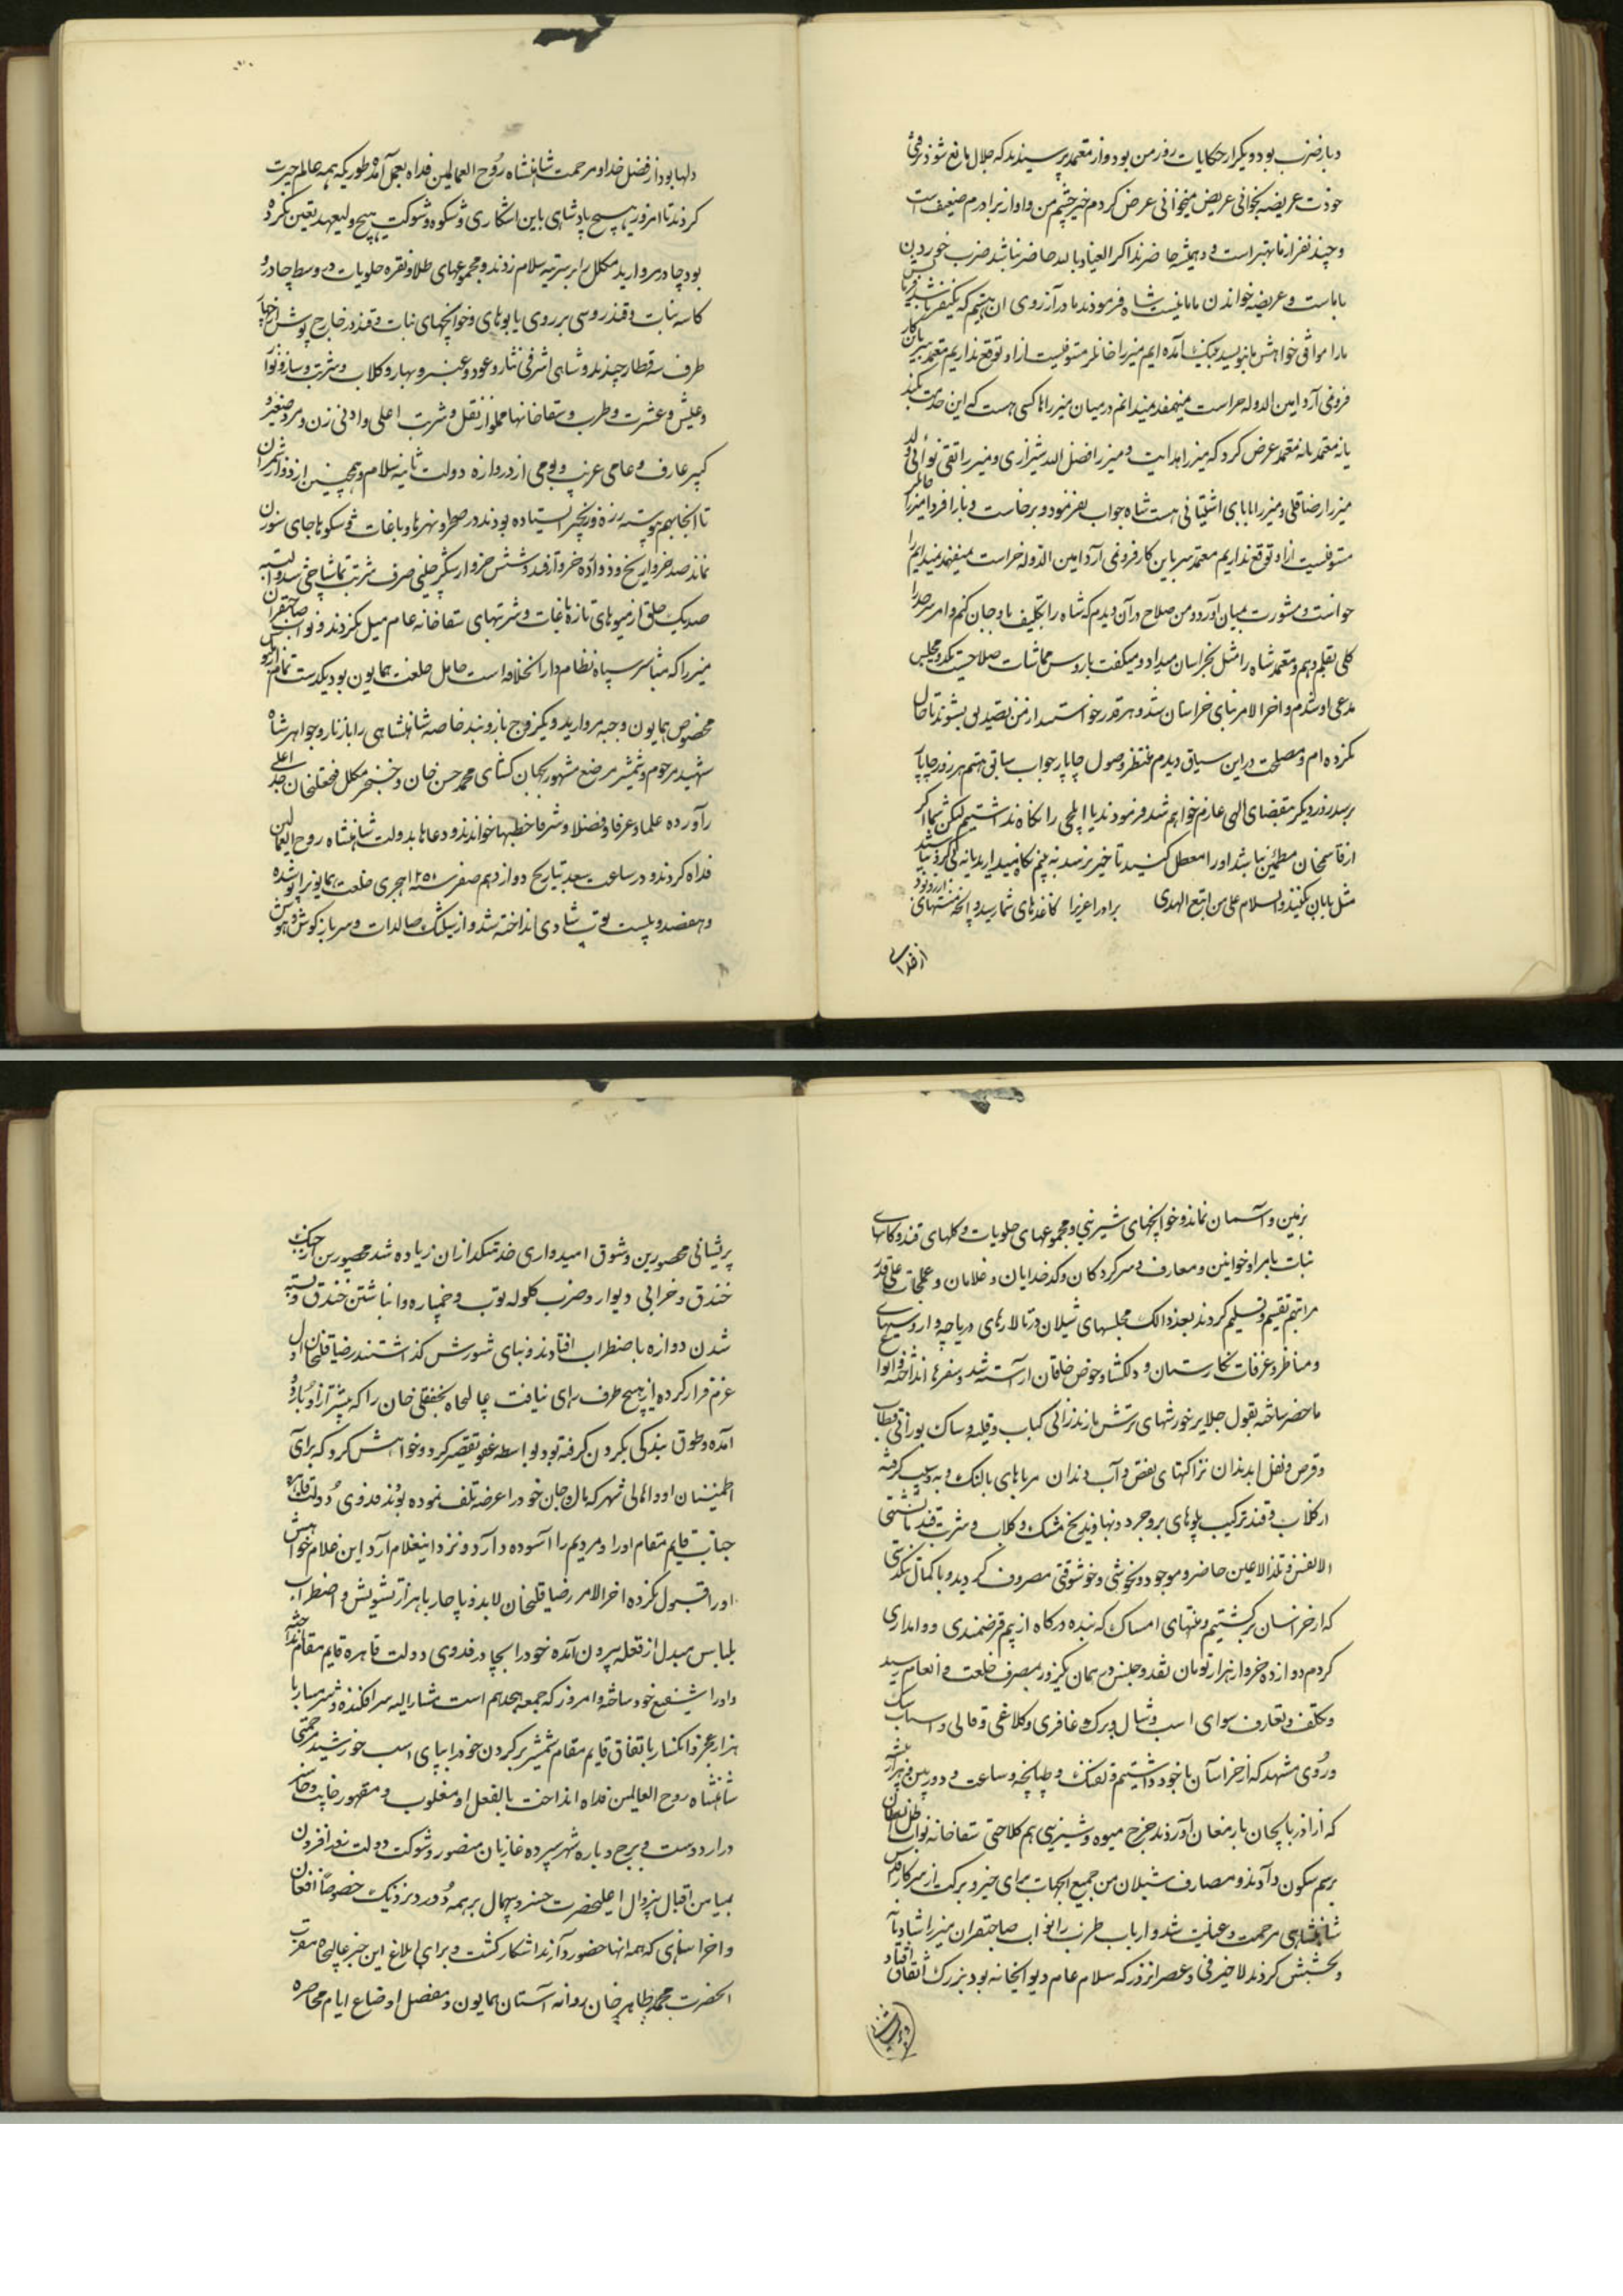 دبار ضرب بود و یکی از حکایات روز من بود و از معتمد پرسیدند که جلال ما رفع شود
خودت عریضه بخوانی عریض میخوانی عرض کردم خیر چشم من و آواز برادرم ضعیف است
و چند نفر از ما بهتر است و همیشه حاضرند اگر العیاذ بالله حاضر نباشد ضرب خوردن
با ماست و عریضه خواندن با ما نیست شاه فرمودند ما در آرزوی آن هستیم که یکنفر
ما را موافق خواهش ما بنویسد آمده ایم میرزا خانلر مستوفیست از او توقع نداریم معتمد
فروغی آرد امین الدوله حراست میفهمد نمیدانم در میان میرزاها کسی هست که این خدمت بکند
یا نه معتمد عرض کرد که میرزا هدایت و میرزا فضل الله شیرازی و میرزا تقی نوائی
میرزا رضاقلی و میرزا بابای آشتیانی هست شاه جواب نفرمود و برخاست و باز فردا میرزا
مستوفیست از او توقع نداریم معتمد سر باین کار فرو نمی آرد امین الدوله حراست میفهمد نمیدانم
خواست و مشورت بمیان آورد و من صلاح در آن دیدم که شاه را تکلیف بادوجان کنم و امر
کلی بقلم دهم و معتمد شاه را میل بخراسان میداد و میگفت با روس مماشات صلاحیت
مدعی او شدم و آخر الامر بنای خراسان شد و هر قدر خواستند از من تصدیق بشنوند تا حال
نکرده ام و مصلحت در این سیاق دیدم منتظر وصول چاپار جواب سابق هستم هر روز چاپار
برسد روز دیگر بمقتضای الهی عازم خواهم شد فرمودند یا ایلچی را نگاه نداشتیم لیکن شما اگر
از قاسمخان مطمئن نباشد او را معطل کنید تا خبر برسد به بینم نگاه میدارید یا نه
مثل بابان نکنید والسلام علی من اتبع الهدی برادر عزیزا کاغذهای شما رسید و آنچه منتهای
از خدا
دلها بود از فضل خدا و مرحمت شاهنشاه روح العالمین فداه بعمل آمد طوریکه همه عالم حیرت
کردند تا امروز هیچ پادشاهی باین آشکاری و شکوه و شوکت هیچ ولیعهد تعیین نکرده
بود چادر مروارید مکلل را بر سر تپه سلام زدند و مجموعهای طلا و نقره حلویات در وسط چادر و
کاسه نبات و قند روسی بر روی پابوهای و خوانچهای نبات و قند در خارج پوش از
طرف سه قطار چیدند و شاهی اشرفی نثار و عود و عنبر و بهار و گلاب و شربت و ساز و نوا
و عیش و عشرت و طرب و سقاخانها مملو از نقل و شربت اعلی و ادنی زن و مرد صغیر و
کبیر عارف و عامی غریب و بومی از دروازه دولت تا تپه سلام و همچنین از دروازه شمران
تا آنجا بهم پیوسته رزه و زنجیر ایستاده بودند در صحرا و نهرها و باغات و سکوها جای سوزن
نماند صد خروار یخ و دوازده خروار قند و شش خروار سکر چینی صرف شربت تماشاچی شد و البته
صد یک خلق از میوهای تازه باغات و شربتهای سقاخانه عام میل نکردند و نواب صاحبقران
میرزا که مباشر سپاه نظام دار الخلافه است حامل خلعت همایون بود یکدست تمام
مخصوص همایون و جبه مروارید و یکزوج بازوبند خاصه شاهنشاهی را با زنار و جواهر شاه
شهید مرحوم و شمشیر مرصع مشهور بجهان گشای محمد حسن خان و خنجر مکلل فتحعلیخان جد اعلی
را آورده علما و عرفا و فضلا و شرفا خطبها خواندند و دعاها بدولت شاهنشاه روح العالمین
فداه کردند و در ساعت سعد بتاریخ دوازدهم صفر سنه ۱۲۵۰ هجری خلعت همایون را پوشیده
و هفصد و بیست توپ شادی انداخته شد و از شیلک صالدات و سرباز گوش
بزمین و آسمان نماند و خوانچهای شیرینی و مجموعهای حلویات و کلهای قند و کاسهای
نبات بامرا و خوانین و معارف و سرکردگان و کدخدایان و غلامان و عملجات علی قدر
مراتبهم تقسیم و تسلیم کردند بعد ذالک مجلسهای شیلان در تالارهای دریاچه و
و مناظر و غرفات نگارستان و دلگشا و حوض خلقان آراسته شد و سفرها انداخته
ماحضر ساخته بقول جلایر خورشهای ترشش مازندرانی کباب و قلیه و ساک بورانی
و قرص و نفل ابدندان نزاکتهای نغض و آب دندان مرباهای بالنگ و به و سیب گرفته
از گلاب و قند ترکیب پلوهای بروجرد و نهاوند یخ مشک و گلاب و شربت قند ما تشتهی
الانفس و تلذ الاعین حاضر و موجود و بخوشی و خوشوقتی مصروف گردید و با کمال تنگدستی
که از خراسان برگشتیم و منتهای امساک که بنده درگاه از بیم قرضمندی و وامداری
کردم دوازده خروار هزار تومان نقد و جنس در همان یکروز بمصرف خلعت و انعام رسید
و تکلف و تعارف سوای اسب و شال و برک و غافری و کلاغی و قالی و اسباب
و روی مشهد که از خراسان با خود داشتیم و تفنگ و طپانچه و ساعت و دوربین
که از آذربایجان بارمغان آوردند خرج میوه و شیرینی هم کلاحتی سقاخانه نواب ظل السلطان
برسم سکون دادند و مصارف شیلان من جمیع الجهات برای خیر و برکت از سرکار
شاهنشاهی مرحمت و عنایت شد و ارباب طرب را نواب صاحبقران میرزا
و بخشش کردند لاخیر فی و عصر آنروز که سلام عام دیوانخانه بود بزرگ اتفاق افتاد
پریشانی محصورین و شوق امیدواری خدمتگذاران زیاده شد محصورین از
خندق و خرابی دیوار و ضرب گلوله توپ و خمپاره و انباشتن خندق و بسته
شدن دوازه باضطراب افتادند و بنای شورش گذاشتند رضاقلیخان اول
عزم فرار کرده از هیچ طرف رای نیافت عالیجاه نجفقلی خان را که پیشتر از او باردو
آمده و طوق بندگی بگردن گرفته بود بواسطه عفو تقصیر کرد و خواهش کرد که برای
اطمینان او و اهالی شهر که مال و جان خود را عرضه تلف نموده بودند فدوی دولت قاهره
جناب قایم مقام او را و مردم را آسوده دارد و نزد اینغلام آرد این غلام خواهش
او را قبول نکرده آخر الامر رضاقلیخان لابد و ناچار با هزار تشویش و اضطراب
بلباس مبدل از قلعه بیرون آمده خود را بچادر فدوی دولت قاهره قایم مقام انداخته
و او را شفیع خود ساخته و امروز که جمعه هجدهم است مشار الیه سرافکنده و شرمسار با
هزار عجز و انکسار باتفاق قایم مقام شمشیر بر گردن خود را بپای اسب خورشید
شاهنشاه روح العالمین فداه انداخت بالفعل او مغلوب و مقهور خایب و خاسر
در اردوست و برج و باره شهر سپرده غازیان منصور و شوکت دولت
بمیامن اقبال بیزوال اعلیحضرت خسرو بیهمال بر همه دور و نزدیک خصوصاً افغان
و اخراسانی که همه اینها حضور دارند آشکار گشت و برای ابلاغ این خبر عالیجاه مقرب
الحضرت محمد طاهر خان روانه آستان همایون و مفصل اوضاع ایام محاصره